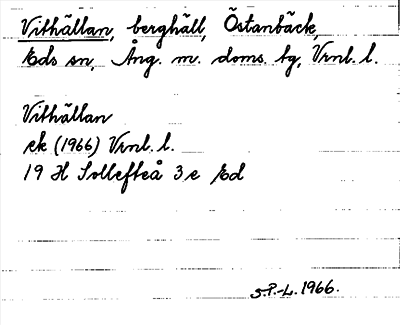 Vithällan, berghäll, Östanbäck,
Eds sn, Ång. m. doms. tg, Vrnl. l.
Vithällan
ek (1966) Vrnl. l.
19 H Sollefteå 3 e Ed
S.P.-L. 1966.